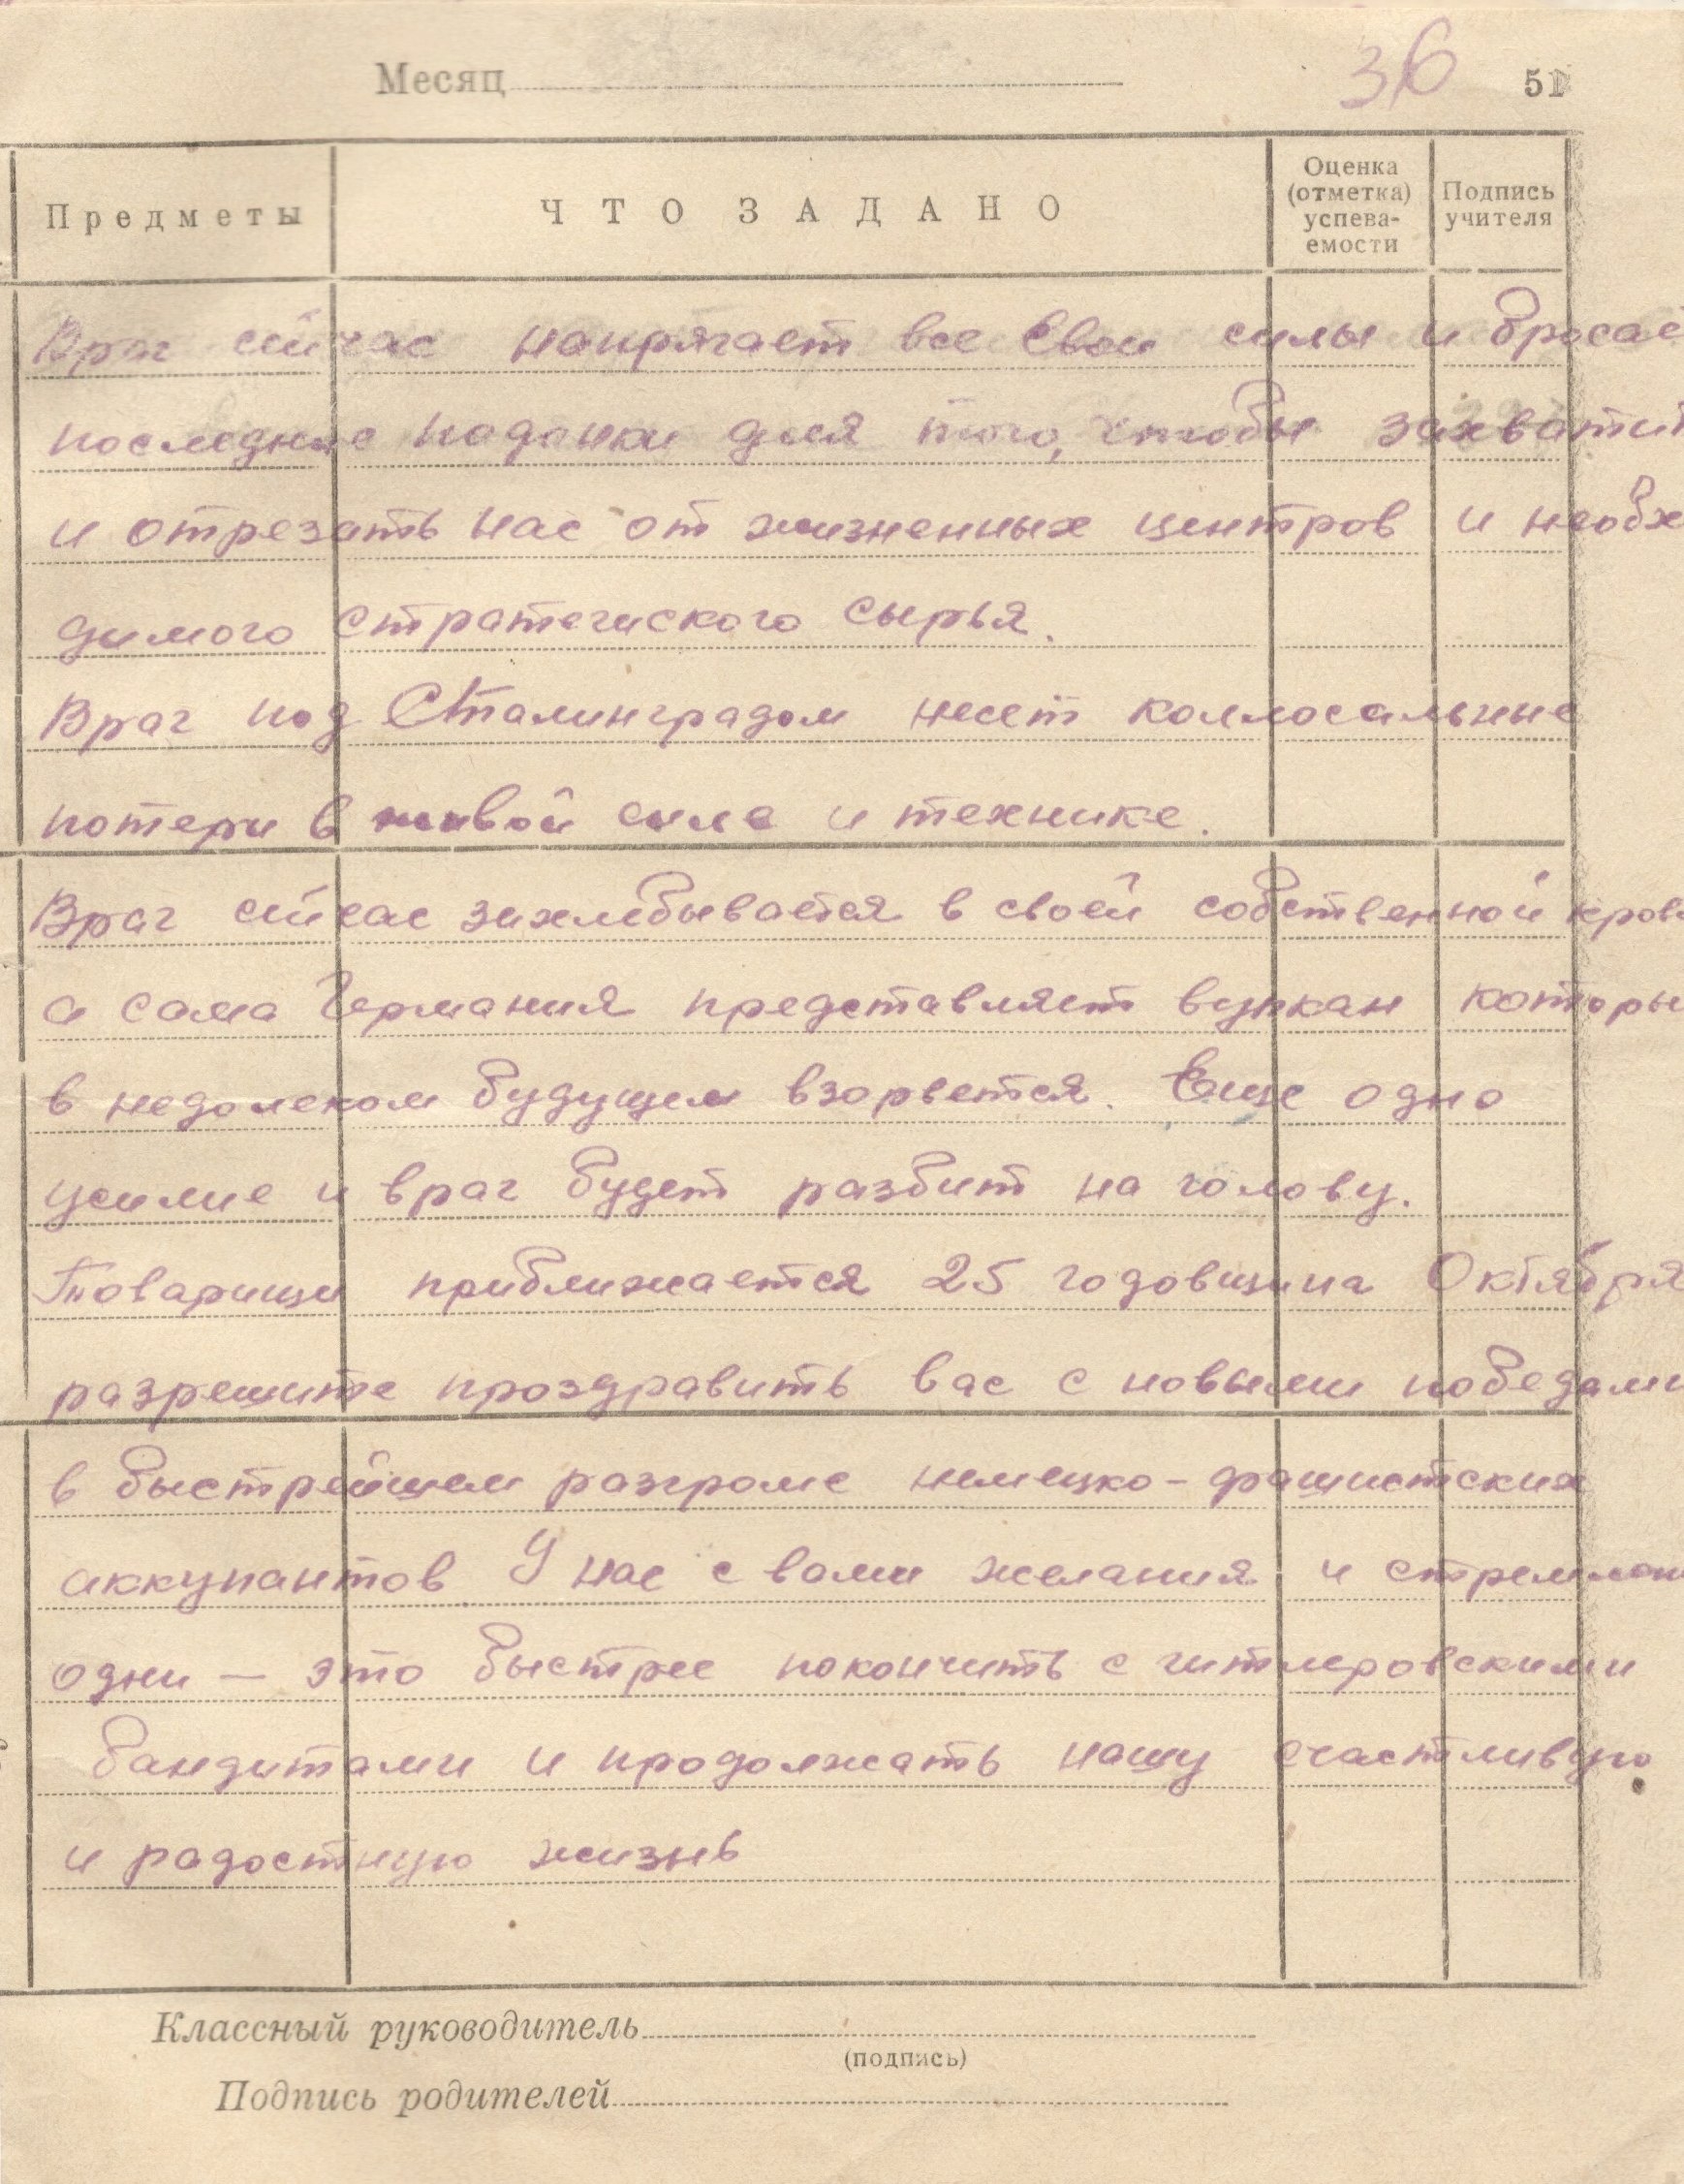 Месяц
36
51
Предметы
ЧТО ЗАДАНО
Оценка
(отметка)
успева-
емости
Подпись
учителя
Враг сейчас напрягает все свои силы и бросае
последние подонки для того, чтобы захватит
и отрезать нас от жизненных центров и необх
димого стратегиского сырья.
Враг под Сталинградом несет коллосальные
потери в живой силе и технике.
Враг сейчас захлебывается в своей собственной кров
а сама Германия представляет вулкан которы
в недолеком будущем взорвется. Еще одно
усилие и враг будет разбит на голову.
Товарищи приближается 25 годовщина Октября
разрешите проздравить вас с новыми победами
в быстрейшем разгроме немецко-фашистских
аккупантов У нас с вами желания и стремлен
одни — это быстрее покончить с гитлеровскими
бандитами и продолжать нашу счастливую
и радостную жизнь
Классный руководитель
(подпись)
Подпись родителей